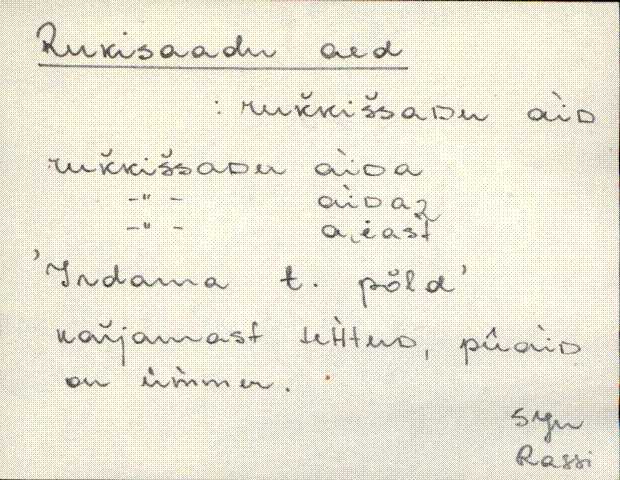 Rukisaadu aed
: rukkissaDu àiD
rukkissaDu àiDa
-"- àiDaz
-"- a.iast
'Irdama t. põld'
kaijamast teHtuD, pûàiD
on ümmer.
Syn
Rassi